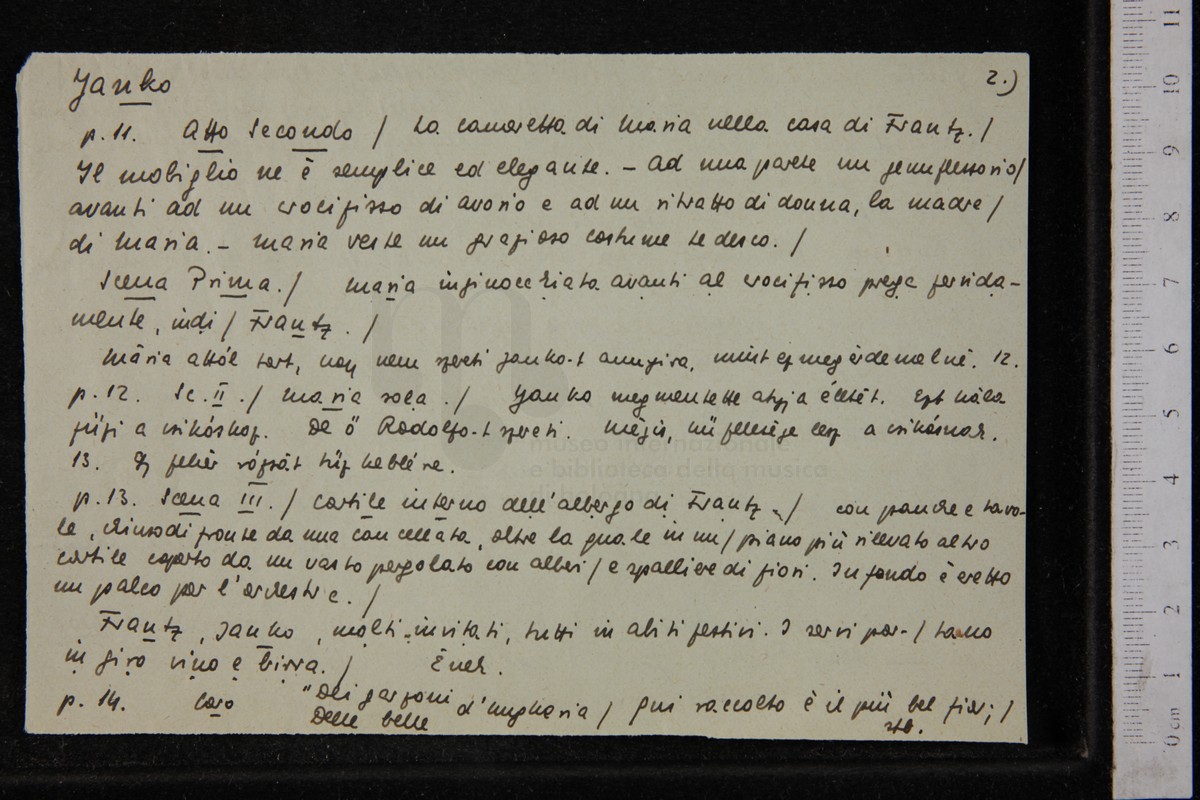 Janko 2.)
p. 11. Atto Secondo / La cameretta di Maria nella casa di Frantz. /
Il mobiglio ne è semplice ed elegante. – Ad una parete un genuflessorio/
avanti ad un crocifisso di avorio e ad un ritratto di donna, la madre /
di Maria. – Maria veste un grazioso costume tedesco. /
Scena Prima. / Maria inginocchiata avanti al crocifisso prega fervida-
mente, indi / Frantz. /
Mária attól tart, hogy nem szereti Janko-t annyira, mint ez megérdemelné. 12.
p. 12. Sc. II. / Maria sola. / Janko megmentette atyja életét. Ezt hála
fűzi a csikóshoz. De ő Rodolfo-t szereti. Mégis, hű felesége lesz a csikósnak.
13. Egy fehér rózsát tűz keblére.
p. 13. Scena III. / Cortile interno dell'albergo di Frantz, / con panche e tavo-
le, chiuso di fronte da una cancellata, oltre la quale in un / piano più rilevato altro
cortile coperto da un vasto pergolato con alberi / e spalliere di fiori. In fondo è eretto
un palco per l'orchestre. /
Frantz, Janko, molti invitati, tutti in abiti festivi. I servi por- / tano
in giro vino e birra. / Ének.
p. 14. Coro "Dei garzoni d'Ungheria / Qui raccolto è il più bel fior; /
Delle belle stb.
museo internazionale
e biblioteca della musica